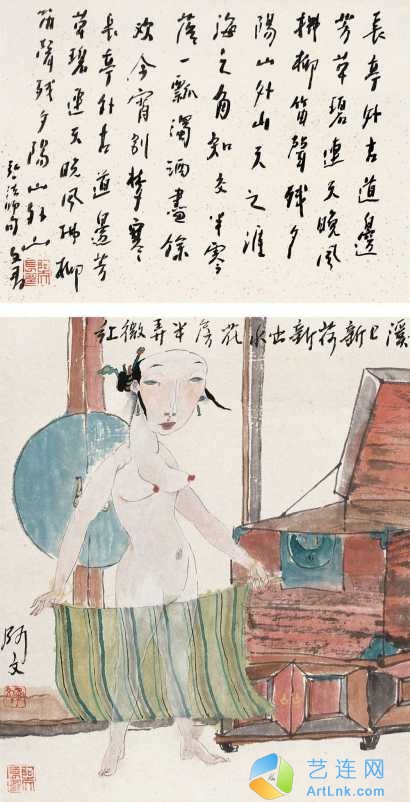 長亭外古道邊
芳草碧連天晚風
拂柳笛聲殘夕
陽山外山天之涯
海之角知交半零
落一瓢濁酒盡餘
欢今宵别梦寒
長亭外古道邊芳
草碧連天晚風拂柳
笛聲殘夕陽山外山
法師句
溪上新荷新出水花房半弄微红
阿文
艺连网
ArtLnk.com